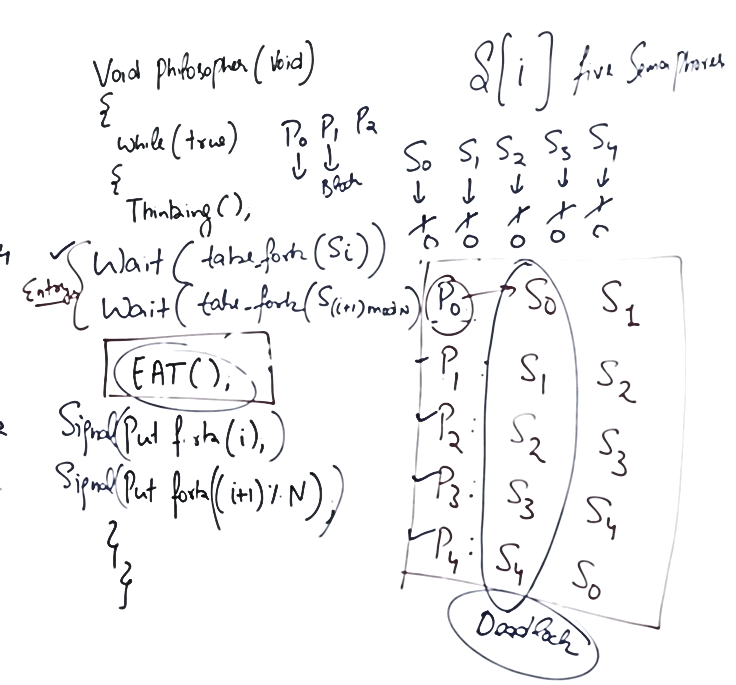 Void philosopher(Void)
{
while(true)
{
Thinking(),
Entry
Wait( take_fork(Si))
Wait( take_fork(S(i+1)modN)
EAT(),
Signal(Put fork(i),)
Signal(Put fork((i+1)%N),)
}
}
P0 P1 P2
↓ ↓
Block
S[i] five Semaphores
S0 S1 S2 S3 S4
↓ ↓ ↓ ↓ ↓
1 1 1 1 1
0 0 0 0 0
P0 → S0 S1
P1: S1 S2
P2: S2 S3
P3: S3 S4
P4: S4 S0
Deadlock